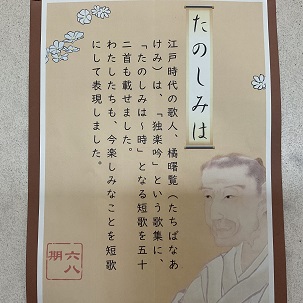 たのしみは
江戸時代の歌人、橘曙覧（たちばなあ
けみ）は、「独楽吟」という歌集に、
「たのしみは～時」となる短歌を五十
二首も載せました。
わたしたちも、今楽しみなことを短歌
にして表現しました。
六八
期